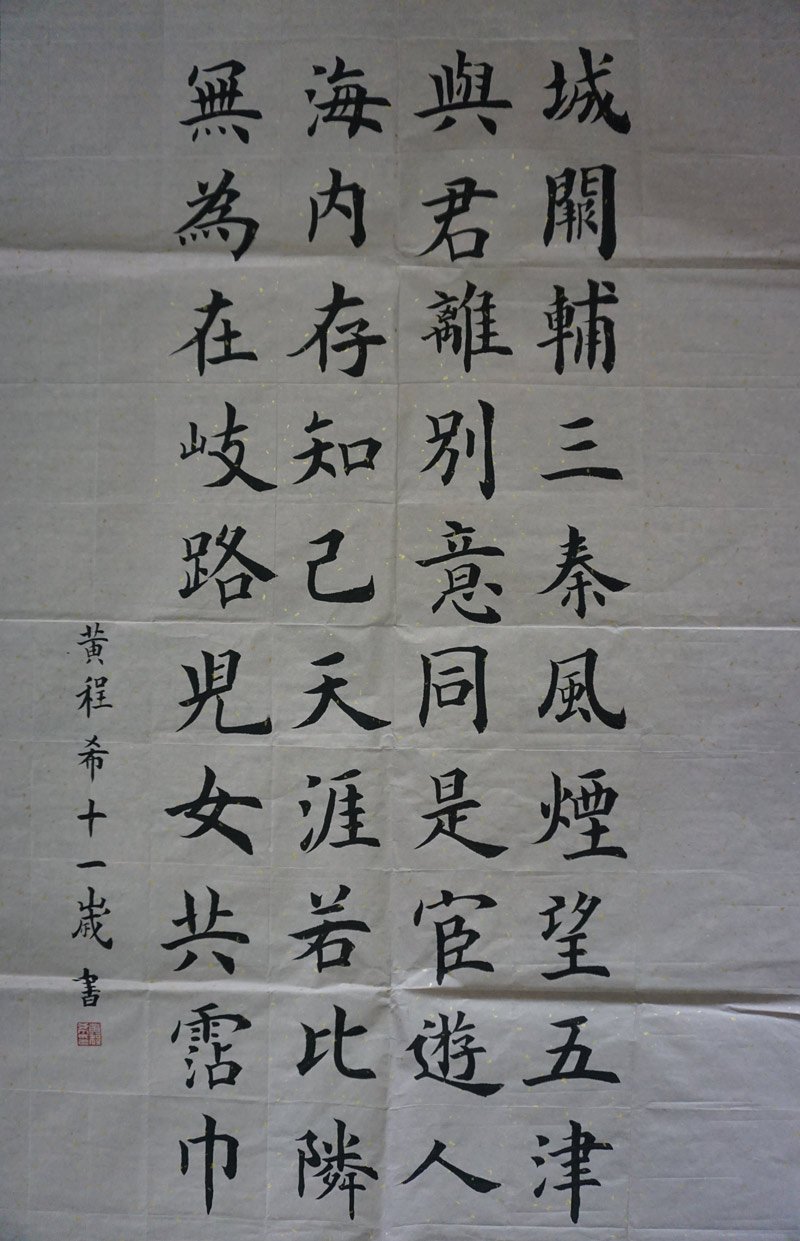 城闕輔三秦風煙望五津
與君離別意同是宦遊人
海内存知己天涯若比隣
無為在岐路兒女共霑巾
黄程希十一歲書